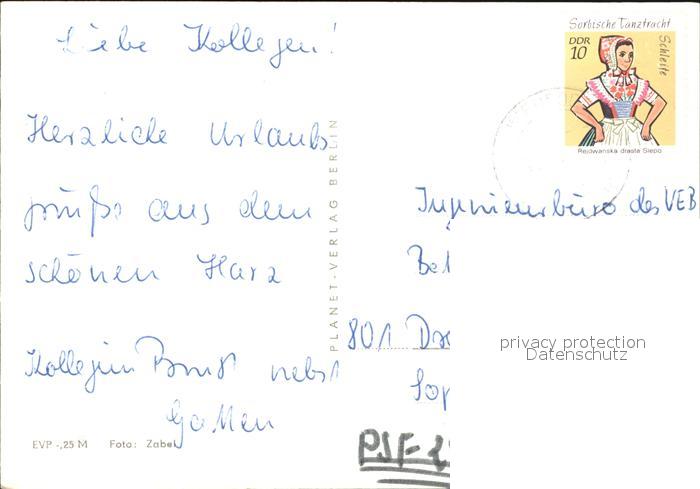 Liebe Kollegen!
Herzliche Urlaubs
grüße aus dem
schönen Harz
Kollegin nebst
Gatten
EVP -,25 M Foto: Zabel
PLANET-VERLAG BERLIN
Sorbische Tanztracht
DDR
10
Schleife
Rejowanska drasta Slepo
Ingenieurbüro des VEB
Bet
801 Dre
PSF-
privacy protection
Datenschutz